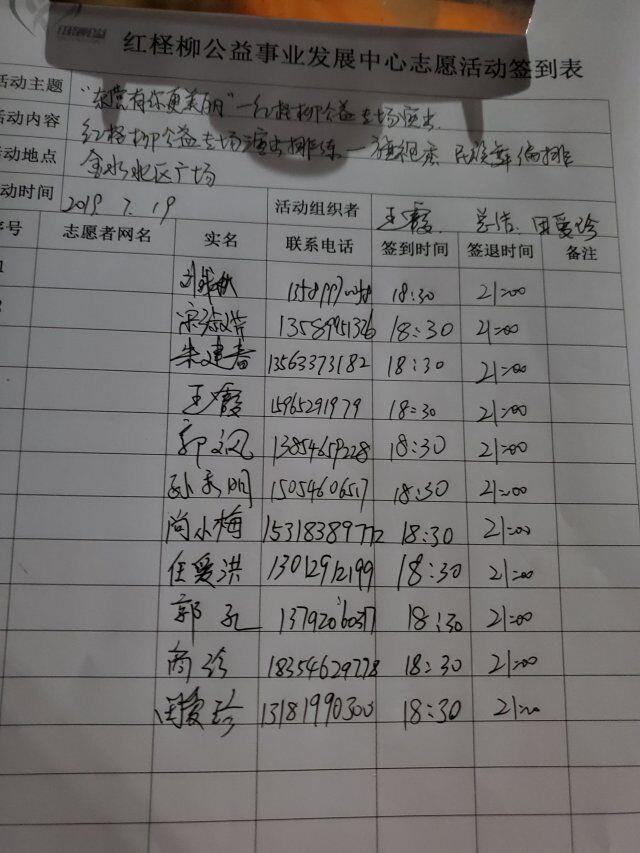 红柽柳公益事业发展中心志愿活动签到表
活动主题 "东营有你更美丽"—红柽柳公益专场演出
活动内容 红柽柳公益专场演出排练— 民族舞 排
活动地点 金水水区广场
动时间 2019 7. 19 活动组织者 王霞、 田爱珍
序号 志愿者网名 实名 联系电话 签到时间 签退时间 备注
18:30 21:00
13589951326 18:30 21:00
朱建春 13563373182 18:30 21:00
王霞 15965291979 18:30 21:00
郭 13854659228 18:30 21:00
孙 明 15054606517 18:30 21:00
尚小梅 15318389772 18:30 21:00
任爱洪 13012912199 18:30 21:00
郭 孔 18:30 21:00
商 18354629778 18:30 21:00
田爱珍 13181990300 18:30 21:00